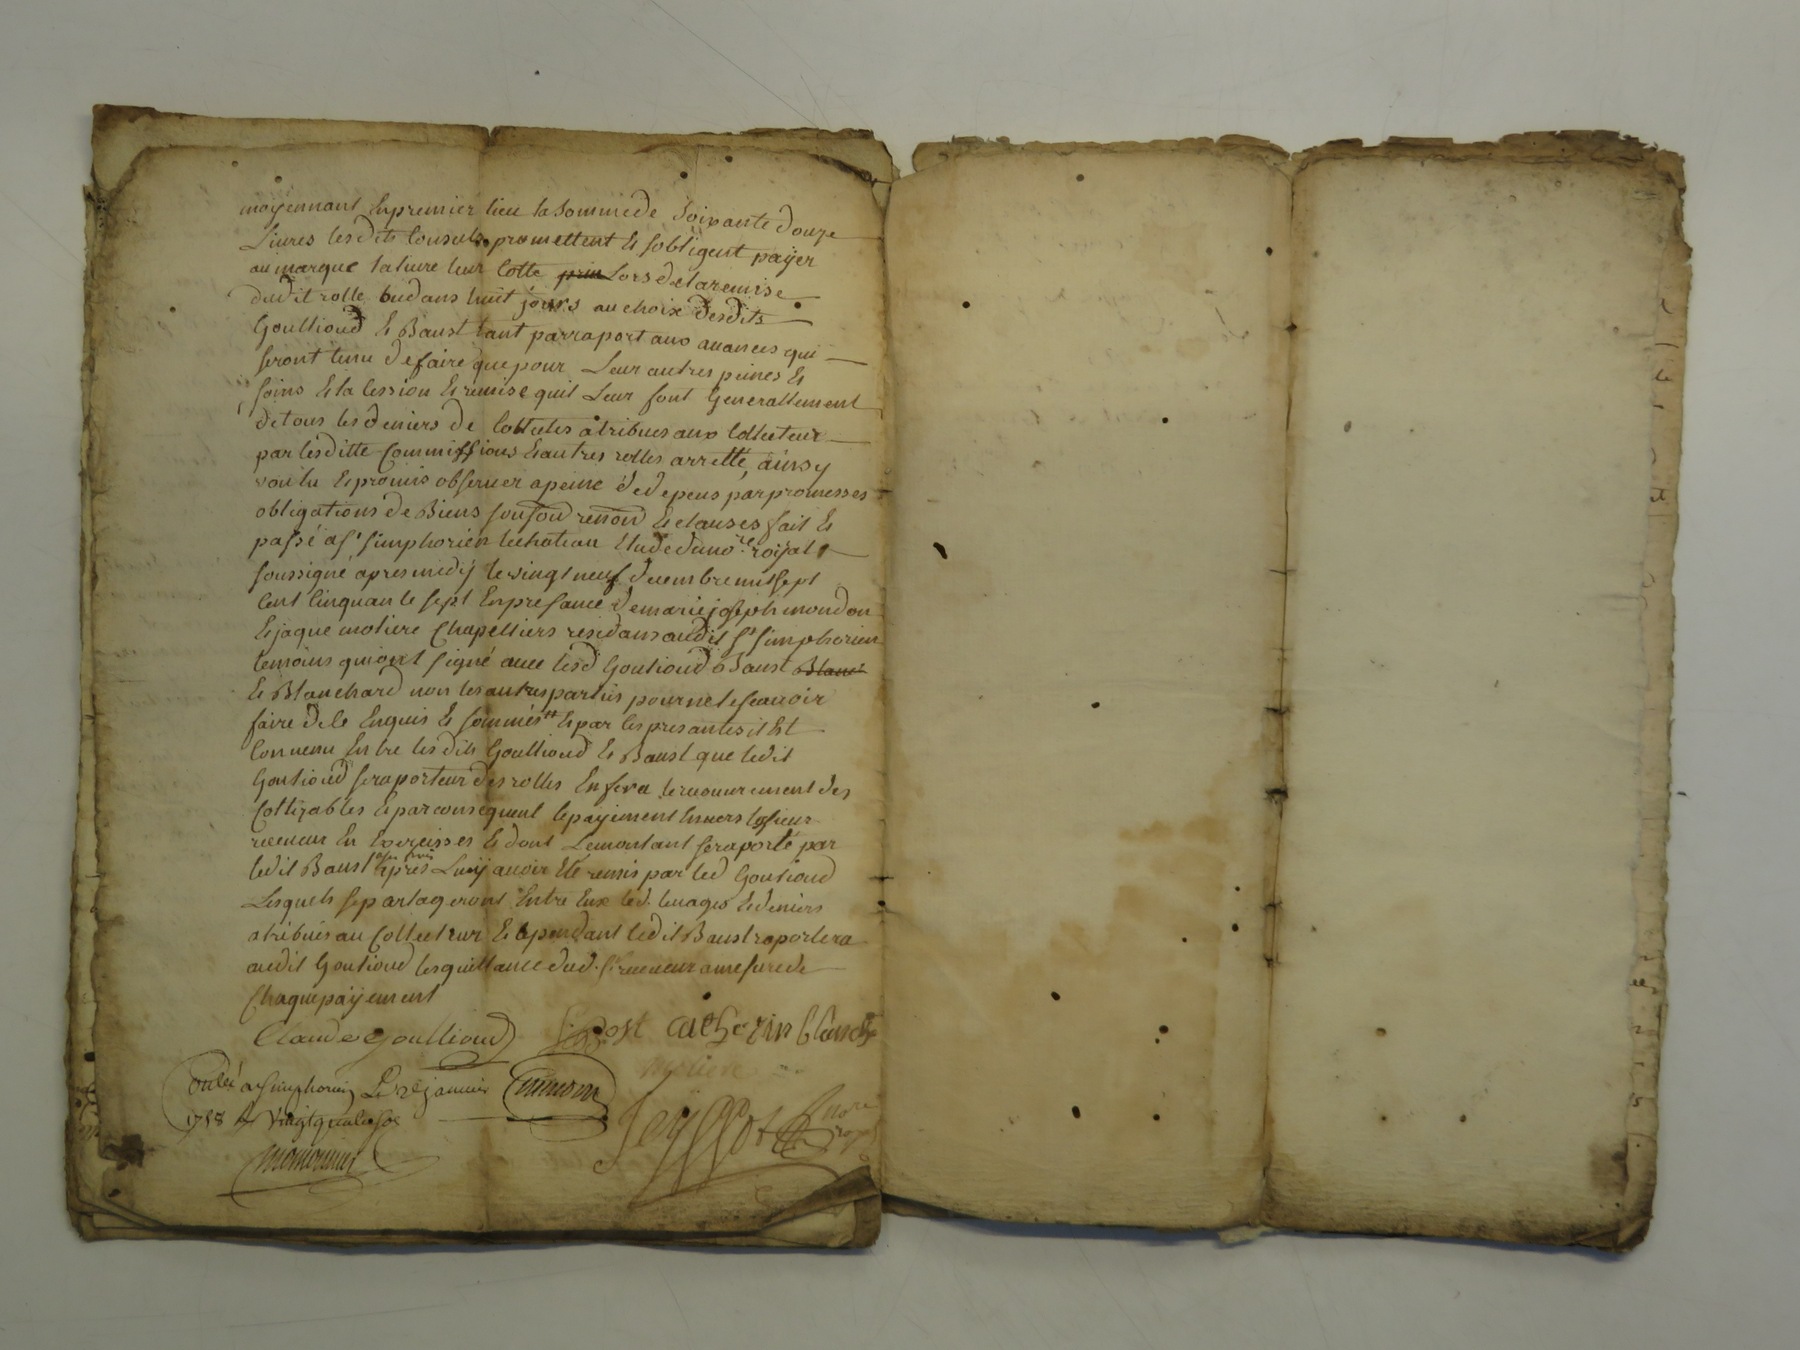 moyennant Enpremier lieu la Somme de Soixante douze
Livres lesdits Consuls promettent & sobligent payer
au marque la livre leur Cotte Lors de la remise
dudit rolle ou dans huit jours au choix desdits
Goullioud & Baust tant par raport aux auances qui
seront tenu de faire que pour Leur autres peines &
soins & la Cession & remise quil Leur font Generallement
de tous les deniers de Collectes atribues aux Collecteur
par lesditte Commissions & autres rolles arretté, ainsy
voulu & promis obseruer a peine de depens par promesses
obligations de Biens renon & clauses fait &
passé a st simphorien lechateau Etude du nore royal
soussigné apres midy le vingt neuf decembre mil sept
Cent Cinquante sept En presance de marie joseph mondon
& jaque moliere Chapelliers residans audit st simphorien
temoins qui ont signé auec lesd Goutioud Baust
& Blanchard non les autres parties pour ne le scauoir
faire de ce Enquis & sommés & par les presantes il Est
Conuenu Entre lesdits Goullioud & Baust que ledit
Goutioud sera porteur des rolles En fera le recouurement des
Cottizables & par consequent le payement Enuers le sieur
receueur En Exercisses & dont Le montant sera porté par
ledit Baust apres Luy auoir Eté remis par led Goutioud
Lesquels se partageront Entre Eux led. leuages & deniers
atribués au Collecteur & Cependant ledit Baust raportera
audit Goutioud les quittance dud. sr receueur a mesure de
Chaque payement
Claude Goullioud Bost catherin blanch
moliere
Conlé a st simphorien Le janvier
1758 Rx vingt quatre sols
nore
royal